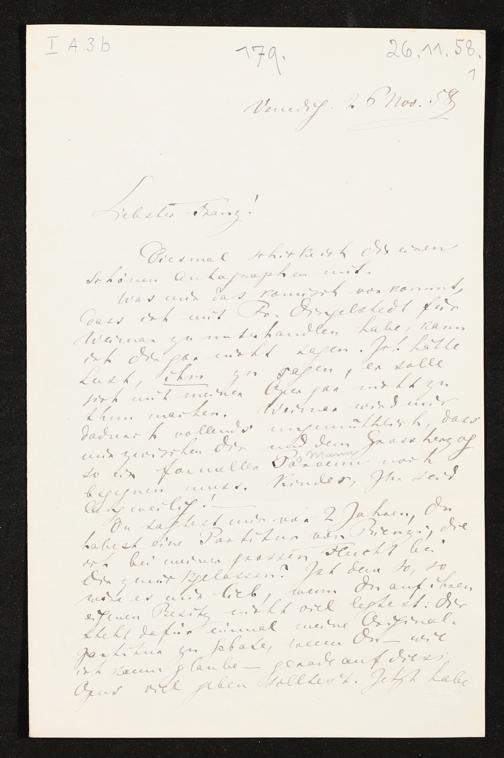 I A 3 b
179.
26.11.58.
1
Venedig. 26 Nov. 58
Liebster Franz!
Diesmal schicke ich dir einen
schönen Autographen mit.
Was mir das komisch vorkommt,
dass ich mit Fr. Dingelstedt für
Weimar zu unterhandeln habe, kann
ich dir gar nicht sagen. Ich hätte
Lust, ihm zu sagen, er solle
sich mit meiner Oper gar nicht zu
thun machen. Weimar wird mir
dadurch vollends ungemüthlich, dass
mir zwischen dir und dem Grossherzog
so ein formeller noch
begegnen muss. Kinder, Ihr seid
langweilig! —
Du sagtest mir vor 2 Jahren, du
habest eine Partitur von Rienzi, die
ich bei meiner grossen Flucht bei
dir zurückgelassen? Ist dem so, so
wäre es mir lieb, wenn du auf ihren
eigenen Besitz nicht viel legtest: dir
steht dafür einmal meine Original-
partitur zu Gebote, wenn du — wie
ich kaum glaube — gerade auf dieses
Opus viel geben solltest. Jetzt habe